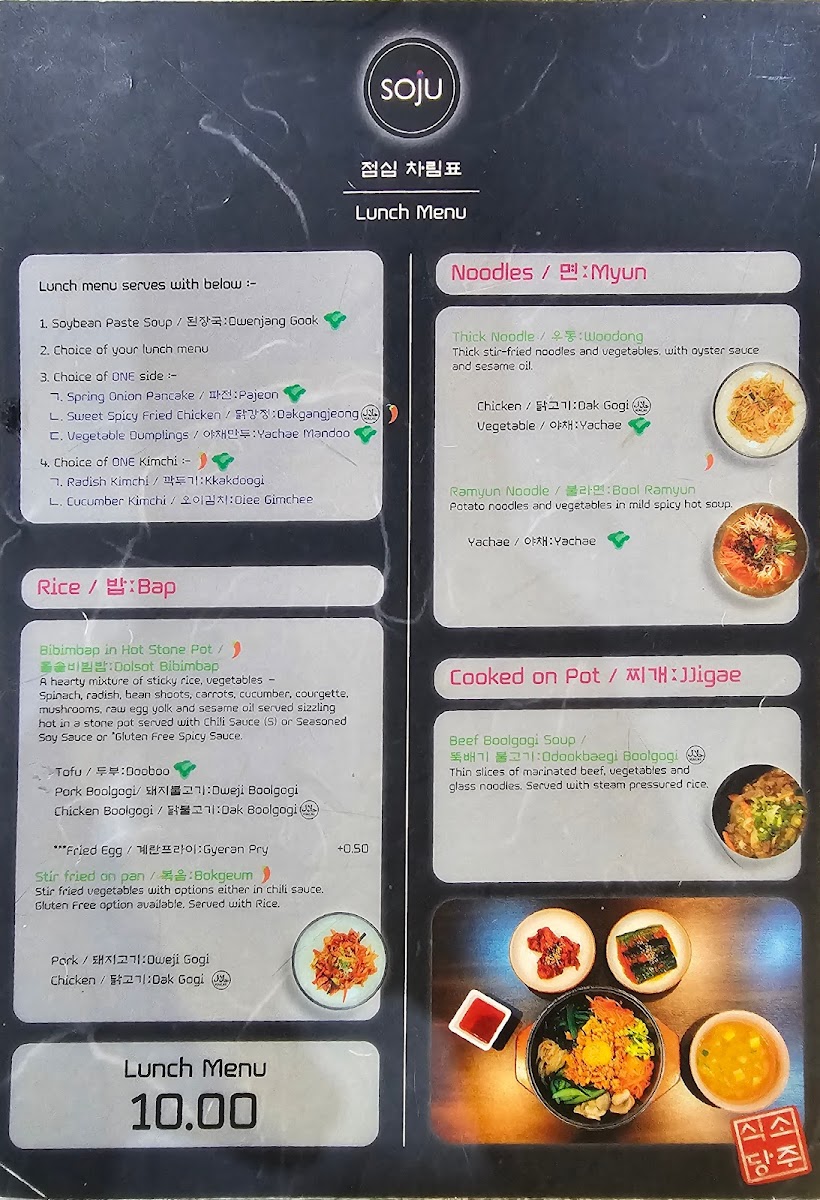 soju
점심 차림표
Lunch Menu
Lunch menu serves with below :-
1. Soybean Paste Soup / 된장국:Dwenjang Gook
2. Choice of your lunch menu
3. Choice of ONE side :-
ㄱ. Spring Onion Pancake / 파전:Pajeon
ㄴ. Sweet Spicy Fried Chicken / 닭강정:Dakgangjeong
ㄷ. Vegetable Dumplings / 야채만두:Yachae Mandoo
4. Choice of ONE Kimchi :-
ㄱ. Radish Kimchi / 깍두기:Kkakdoogi
ㄴ. Cucumber Kimchi / 오이김치:Oiee Gimchee
Rice / 밥:Bap
Bibimbap in Hot Stone Pot /
돌솥비빔밥:Dolsot Bibimbap
A hearty mixture of sticky rice, vegetables –
Spinach, radish, bean shoots, carrots, cucumber, courgette,
mushrooms, raw egg yolk and sesame oil served sizzling
hot in a stone pot served with Chili Sauce (S) or Seasoned
Soy Sauce or *Gluten Free Spicy Sauce.
Tofu / 두부:Dooboo
Pork Boolgogi/ 돼지불고기:Dweji Boolgogi
Chicken Boolgogi / 닭불고기:Dak Boolgogi
***Fried Egg / 계란프라이:Gyeran Pry +0.50
Stir fried on pan / 볶음:Bokgeum
Stir fried vegetables with options either in chili sauce.
Gluten Free option available. Served with Rice.
Pork / 돼지고기:Dweji Gogi
Chicken / 닭고기:Dak Gogi
Lunch Menu
10.00
Noodles / 면:Myun
Thick Noodle / 우동:Woodong
Thick stir-fried noodles and vegetables, with oyster sauce
and sesame oil.
Chicken / 닭고기:Dak Gogi
Vegetable / 야채:Yachae
Ramyun Noodle / 불라면:Bool Ramyun
Potato noodles and vegetables in mild spicy hot soup.
Yachae / 야채:Yachae
Cooked on Pot / 찌개:JJigae
Beef Boolgogi Soup /
뚝배기 불고기:Ddookbaegi Boolgogi
Thin slices of marinated beef, vegetables and
glass noodles. Served with steam pressured rice.
소주
식당